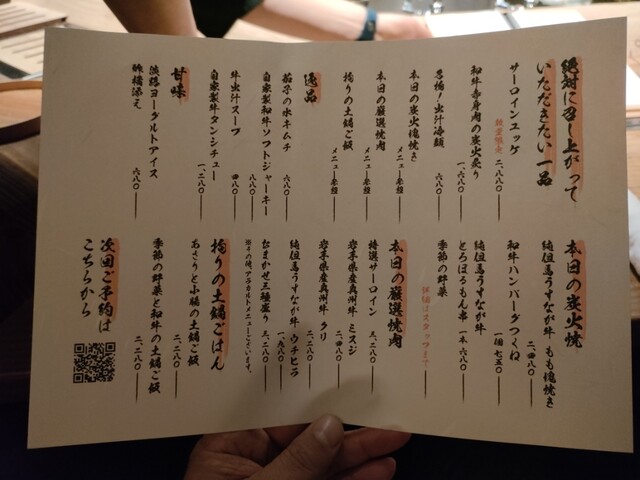 絶対に召し上がって
いただきたい一品
サーロインユッケ
数量限定
二、八八〇
和牛赤身肉の炭火炙り
一、六八〇
名物!出汁冷麺
六八〇
本日の炭火塊焼き
メニュー参照
本日の厳選焼肉
メニュー参照
拘りの土鍋ご飯
メニュー参照
逸品
茄子の水キムチ
六八〇
自家製和牛ソフトジャーキー
八八〇
牛出汁スープ
四八〇
自家製和牛タンシチュー
一、二八〇
甘味
淡路ヨーグルトアイス
蜂蜜添え
六八〇
本日の炭火焼
純但馬うすなが牛 もも塊焼き
二、四八〇
和牛ハンバーグつくね
一個 七五〇
純但馬うすなが牛
とろほるもん串
一本 六八〇
季節の野菜
詳細はスタッフまで
本日の厳選焼肉
特選サーロイン
三、二八〇
岩手県産奥州牛 ミスジ
二、四八〇
岩手県産奥州牛 クリ
二、二八〇
純但馬うすなが牛 ウチヒラ
一、九八〇
おまかせ三種盛り
三、二八〇
※その他アラカルトメニューございます。
拘りの土鍋ごはん
あさりと小鰯の土鍋ご飯
二、二八〇
季節の野菜と和牛の土鍋ご飯
二、二八〇
次回ご予約は
こちらから